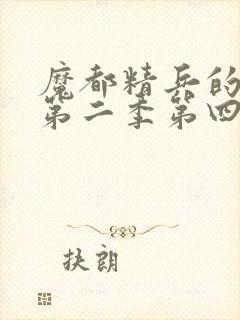 魔都精兵的
第二季第四
扶朗